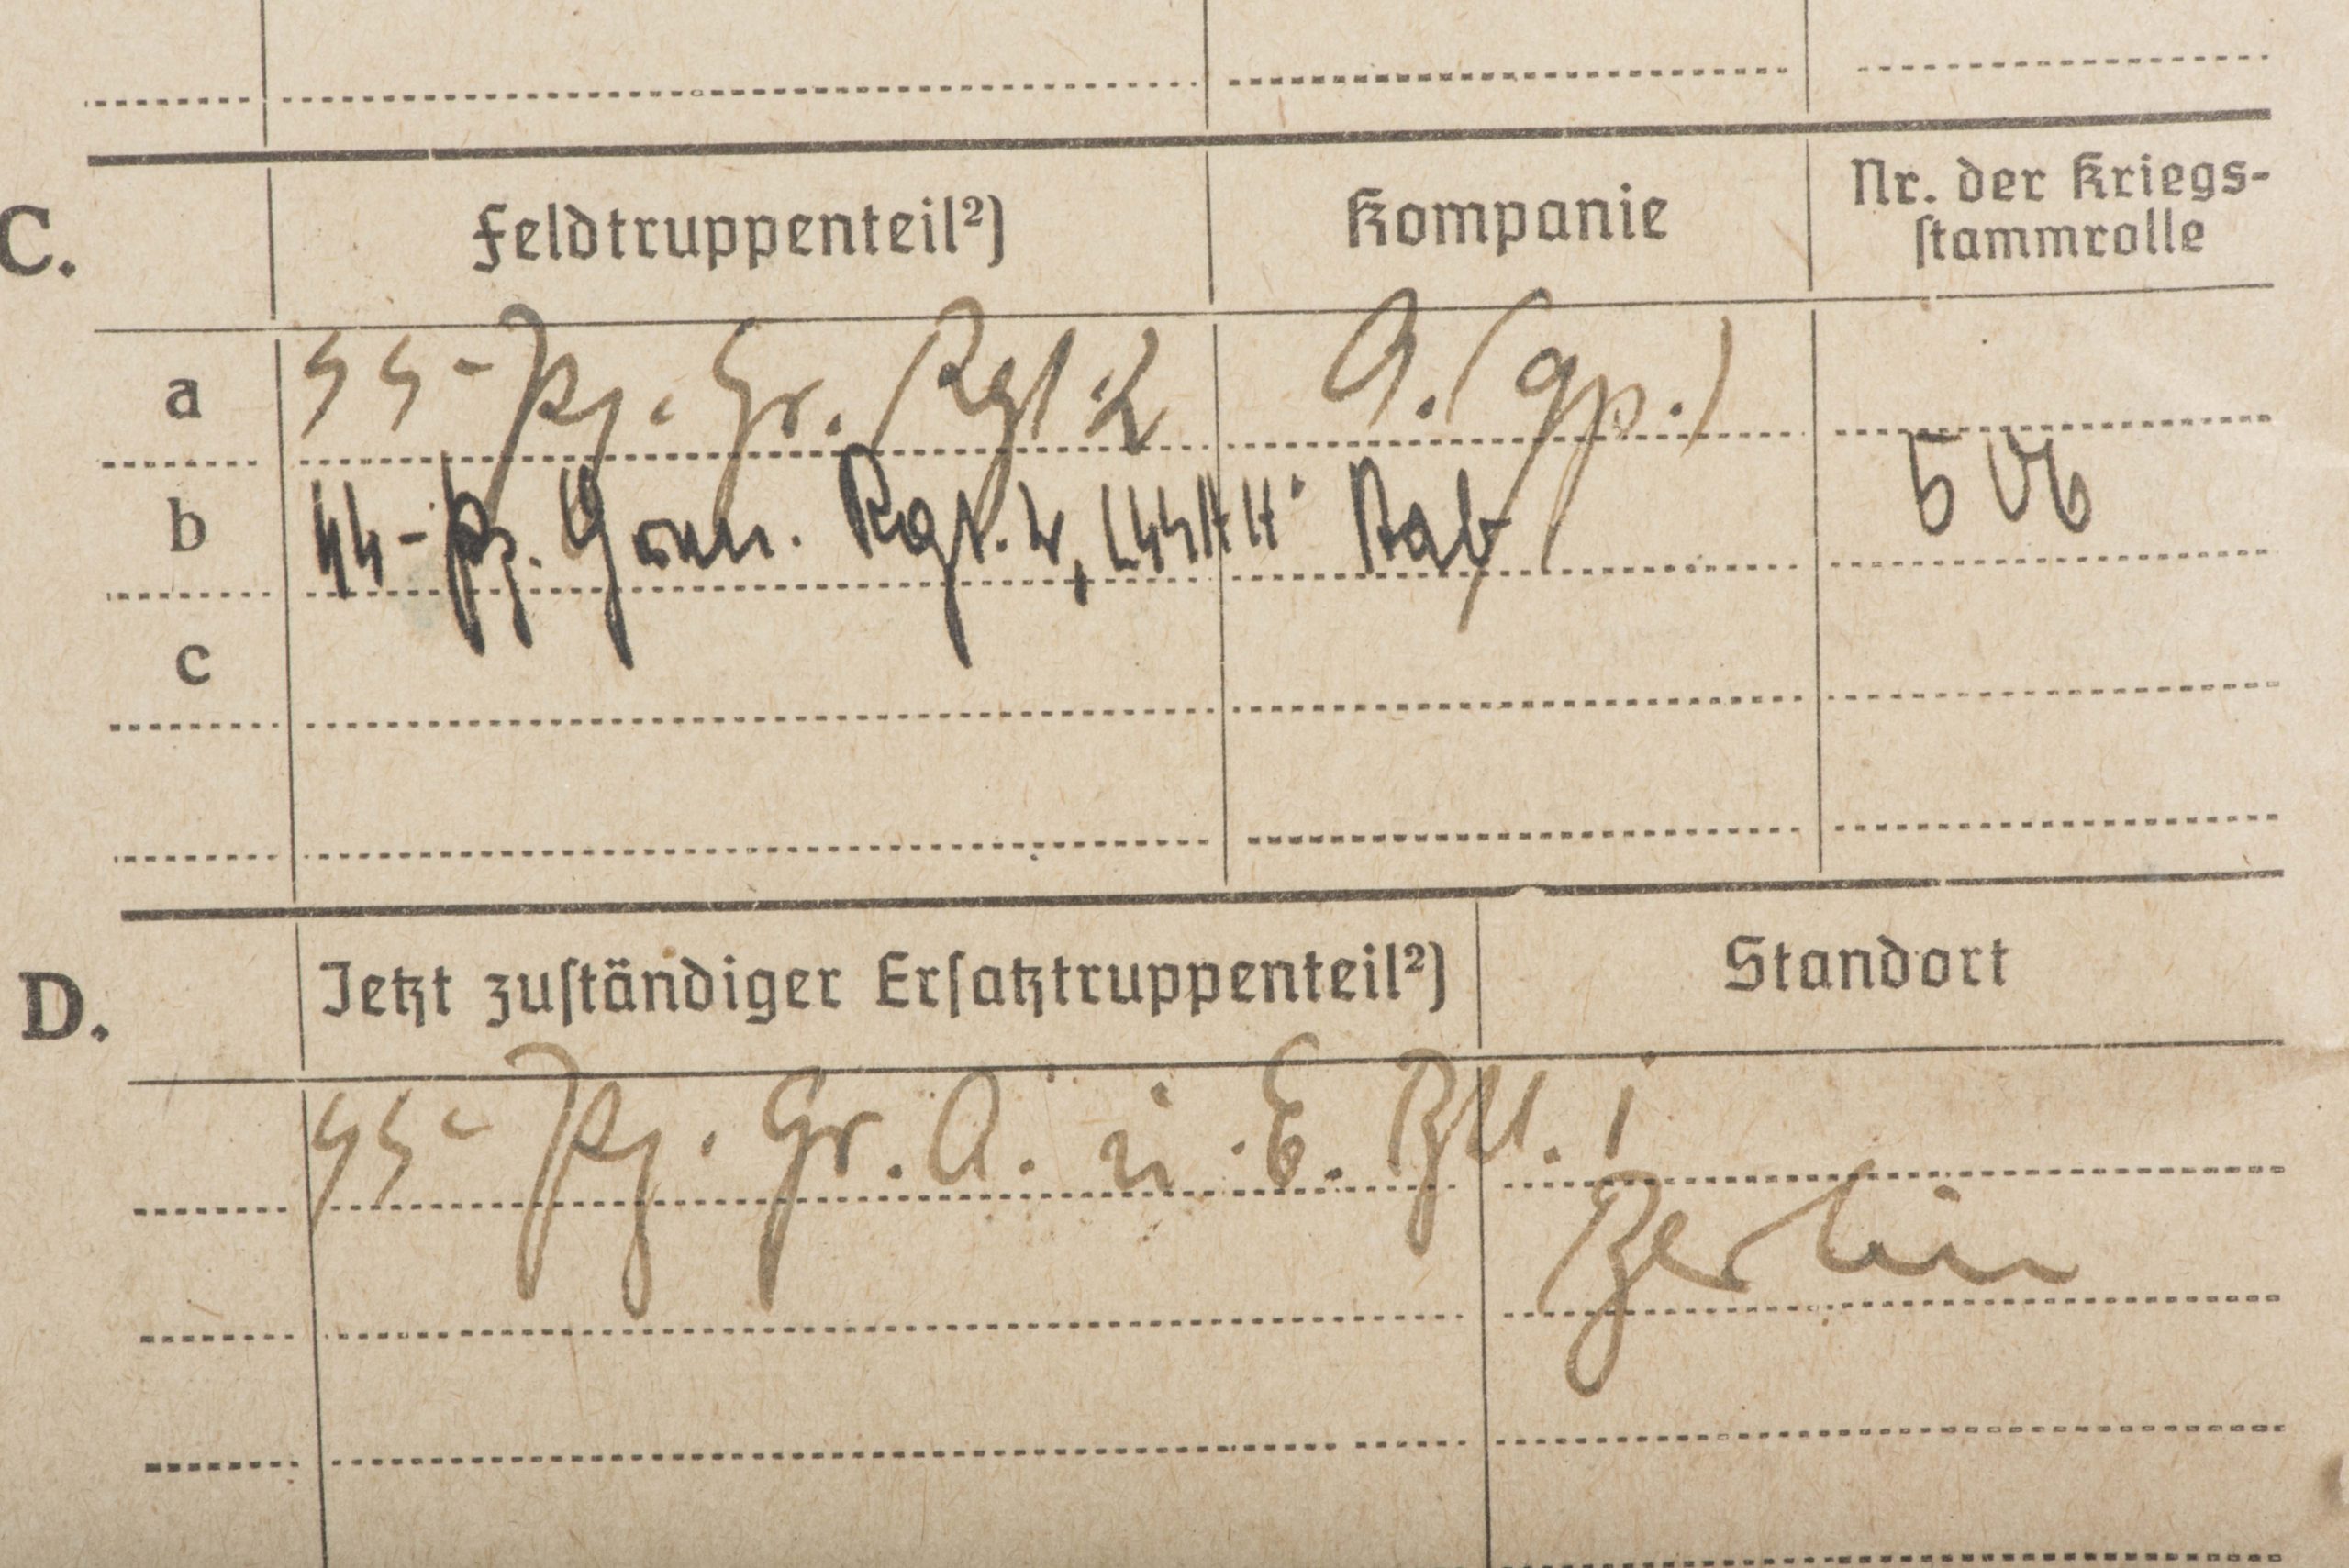 C. Feldtruppenteil²) Kompanie Nr. der Kriegs-
stammrolle
a SS-Pz. Gr. Rgt 2 9. (gp.)
b SS-Pz. Gren. Rgt. 2, LSSAH Stab 506
c
D. Jetzt zuständiger Ersatztruppenteil²) Standort
SS-Pz. Gr. A. u. E. Btl. 1
Berlin